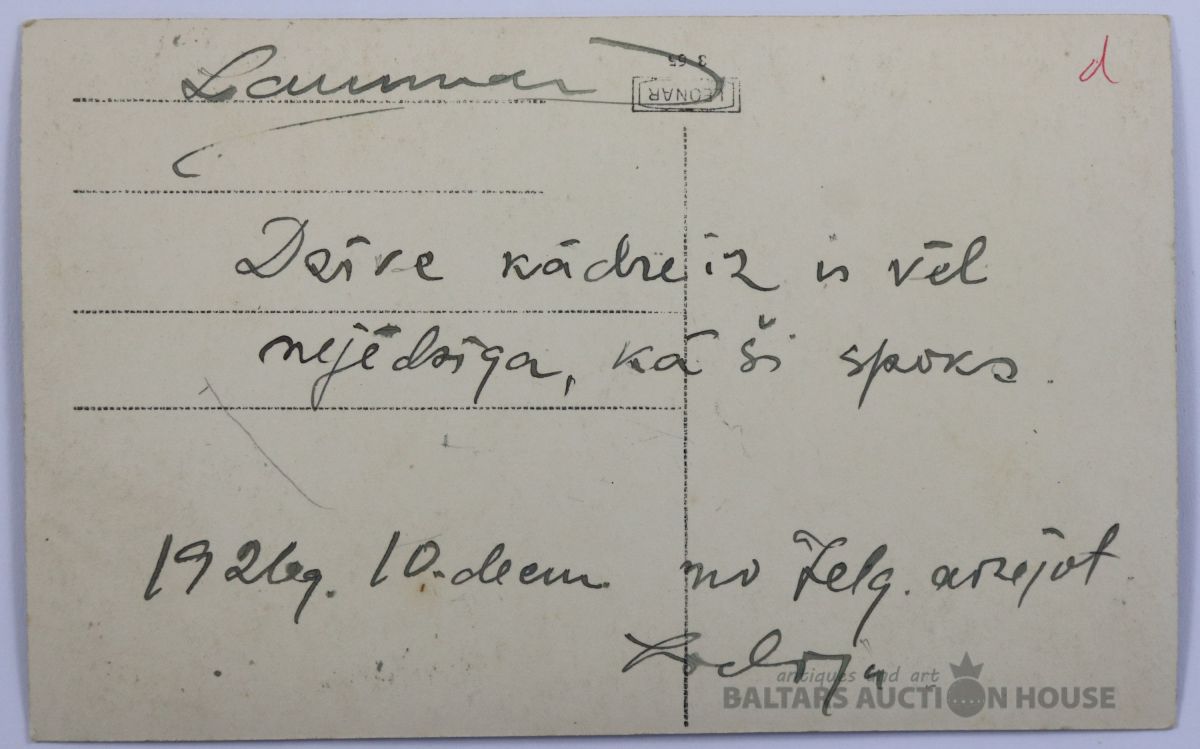 Laumvar
3 65
LEONAR
d
Dzīve kādreiz ir vēl
nejēdzīga, kā ši spoks.
1926g. 10. decem. no Jelg. aizejot
antiques and art
BALTARS AUCTION HOUSE